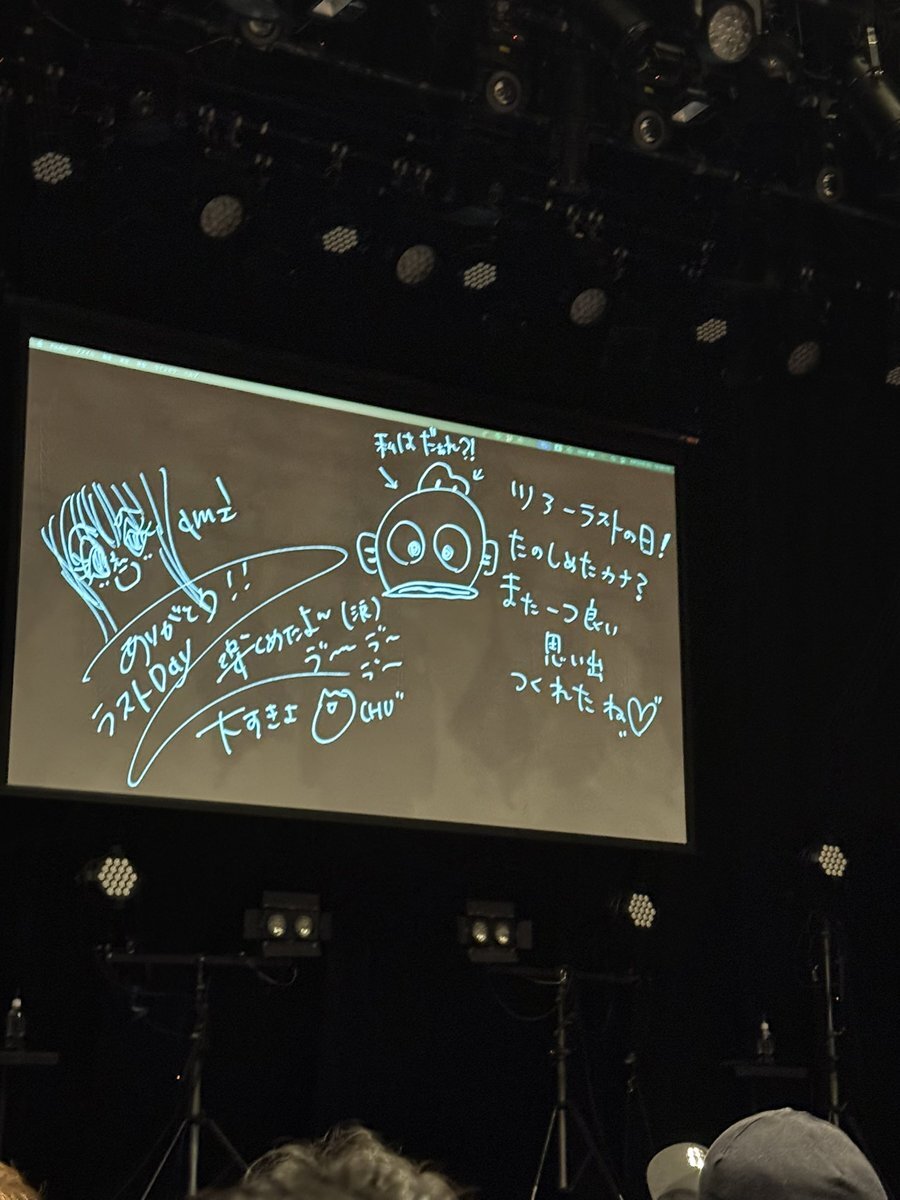 ami
ありがとう!!
ラストDay
楽しめたよ〜(涙)
大すきよ
CHU
私はだぁれ?!
ツアーラストの日!
たのしめたカナ?
また一つ良い
思い出
つくれたね